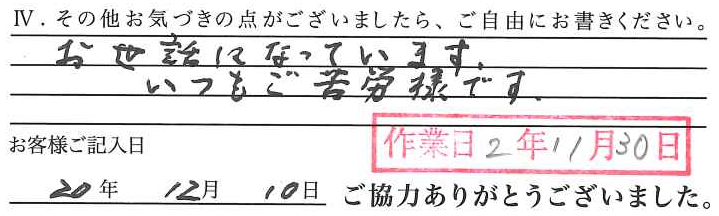 Ⅳ．その他お気づきの点がございましたら、ご自由にお書きください。
お世話になっています。
いつもご苦労様です。
作業日2年11月30日
お客様ご記入日
20年 12月 10日 ご協力ありがとうございました。